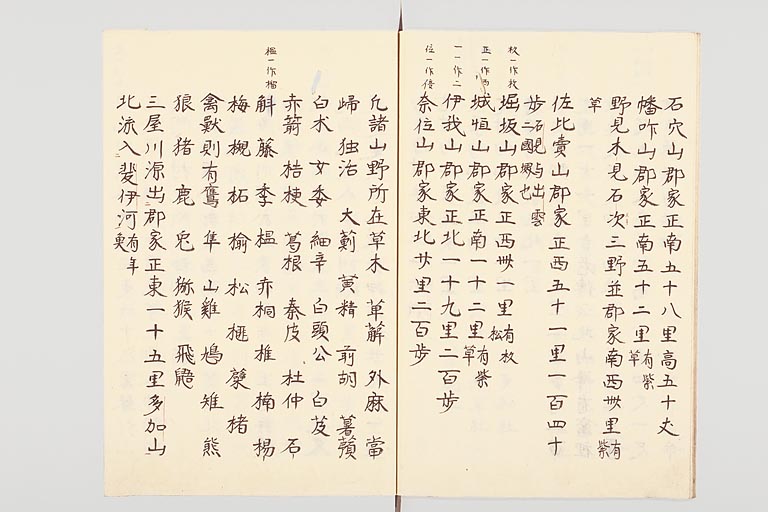 石穴山郡家正南五十八里高五十丈
幡咋山郡家正南五十二里有紫草
野見木見石次三野並郡家南西卌里有紫草
佐比賣山郡家正西五十一里一百四十
歩石見与出雲二國堺也
枚一作牧
堀坂山郡家正西卌里有枚松
正一作西
城恒山郡家正南一十二里有紫草
一一作二
伊我山郡家正北一十九里二百歩
位一作倍
奈位山郡家東北廿里二百歩
凢諸山野所在草木草薢升麻當
歸独活大薊黄精前胡暑蕷
白朮女委細辛白頭公白芨
赤箭桔梗葛根秦皮杜仲石
榲一作榴
斛藤李榲赤桐椎楠楊
梅槻柘榆松榧蘗楮
禽獣則有鷹隼山雞鳩雉熊
狼猪鹿兎獼猴飛鼯
三屋川源出郡家正東一十五里多加山
北流入斐伊河有年魚